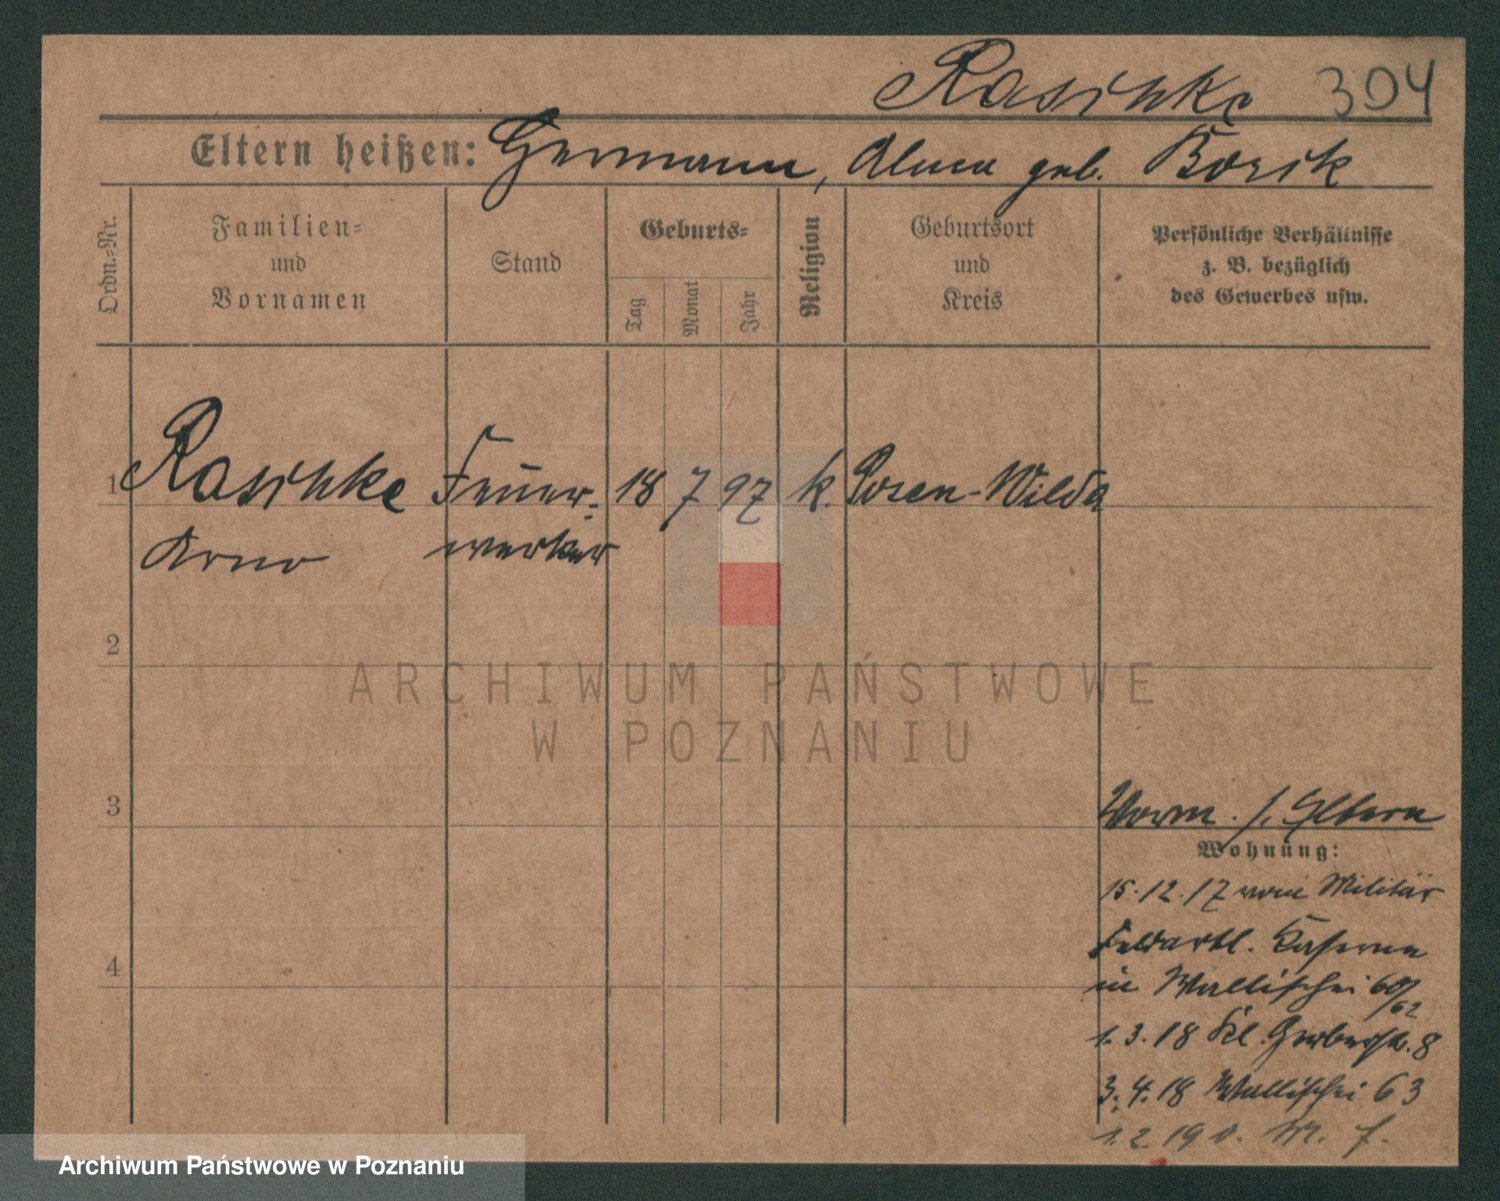 Raschke 304
Eltern heißen: Hermann, Alma geb. Borsik
Ordn.-Nr.
Familien-
und
Vornamen
Stand
Geburts-
Tag
Monat
Jahr
Religion
Geburtsort
und
Kreis
Persönliche Verhältnisse
z. B. bezüglich
des Gewerbes usw.
1 Raschke Feuer- 18 7 97 k. Posen-Wilda
Arno werker
2
ARCHIWUM PAŃSTWOWE
W POZNANIU
3
Vorm. s. Eltern
Wohnung:
15.12.17 vom Militär
Feldartl. Kaserne
4
in Wallischei 60/62
1.3.18 Kl. Gerberstr. 8
3.4.18 Wallischei 63
1.2 19
Archiwum Państwowe w Poznaniu